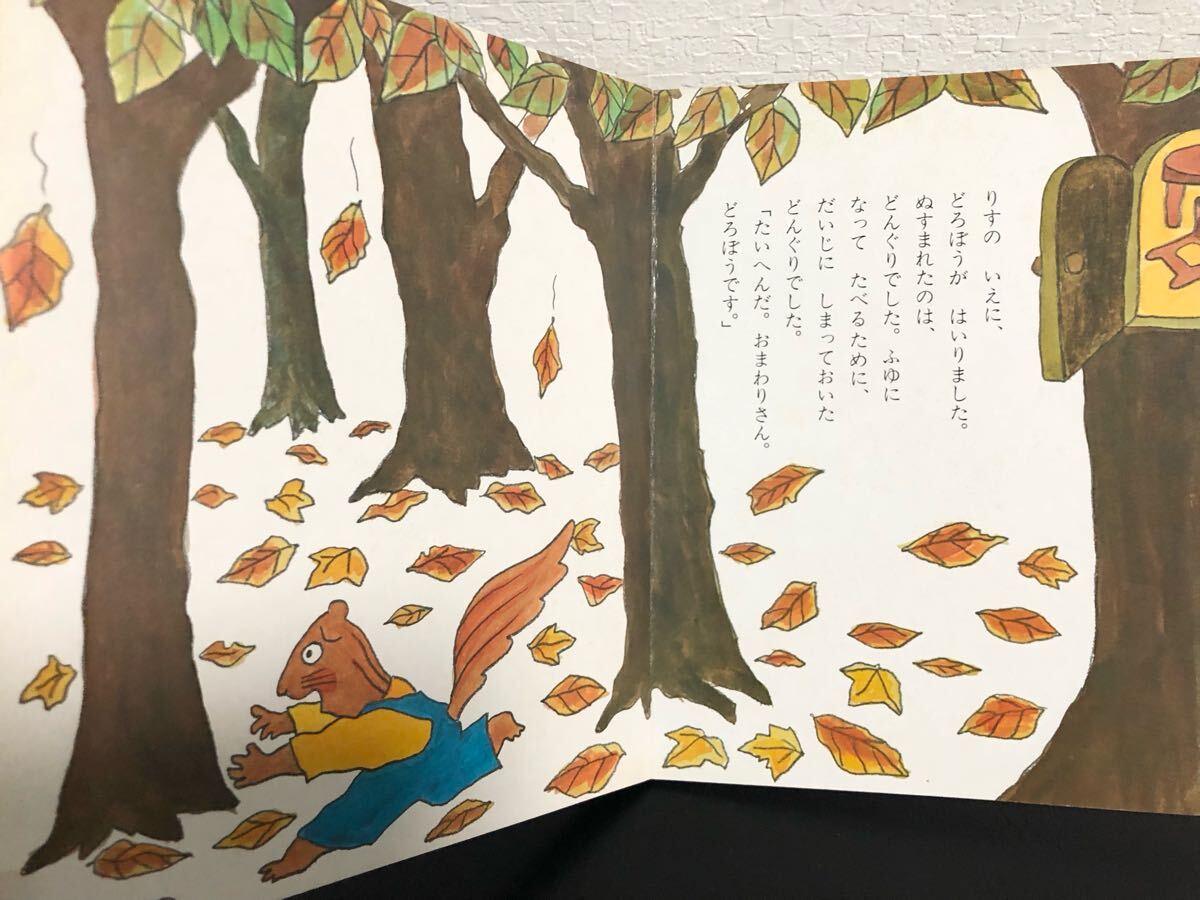 りすの いえに、
どろぼうが はいりました。
ぬすまれたのは、
どんぐりでした。ふゆに
なって たべるために、
だいじに しまっておいた
どんぐりでした。
「たいへんだ。おまわりさん。
どろぼうです。」